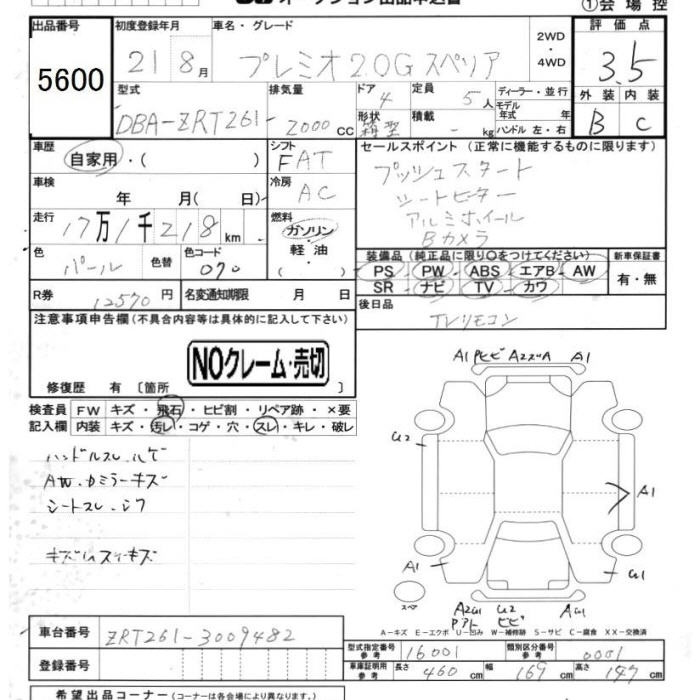 オークション出品申込書
①会場控
出品番号 初度登録年月 車名・グレード 2WD・4WD 評価点
5600 21 8月 プレミオ 2.0G スペリア 3.5
型式 排気量 ドア 4 定員 5人 ディーラー・並行 外装 内装
DBA-ZRT261 2000cc 形状 箱型 積載 - kg モデル年式 年式 ハンドル 左・右 B C
車歴 自家用・( ) シフト FAT セールスポイント(正常に機能するものに限ります)
車検 年 月( 日) 冷房 AC プッシュスタート
シートヒーター
走行 17万1千218km 燃料 ガソリン・軽油・( ) アルミホイール
Bカメラ
色 パール 色替 色コード 070 装備品(純正品に限り○をつけてください) 新車保証書
PS・PW・ABS・エアB・AW 有・無
SR・ナビ・TV・カワ
R券 12570円 名変通知期限 月 日 後日品
TVリモコン
注意事項申告欄(不具合内容等は具体的に記入して下さい)
NOクレーム・売切
修復歴 有〔箇所 〕
検査員 FW キズ・飛石・ヒビ割・リペア跡・×要
記入欄 内装 キズ・汚レ・コゲ・穴・スレ・キレ・破レ
ハンドルスレ.ハゲ
AW.ドミラーキズ
シートスレ.シワ
A1 A1
U2
A1
A1
スペア
U2 ヒビ
A-キズ E-エクボ U-凹み W-補修跡 S-サビ C-腐食 XX-交換済
車台番号 ZRT261-3009482
型式指定番号 参考 16001 類別区分番号 参考 0001
登録番号
車庫証明用 参考 長さ 460cm 幅 169cm 高さ 147cm
希望出品コーナー(コーナーは各会場により異なります。)